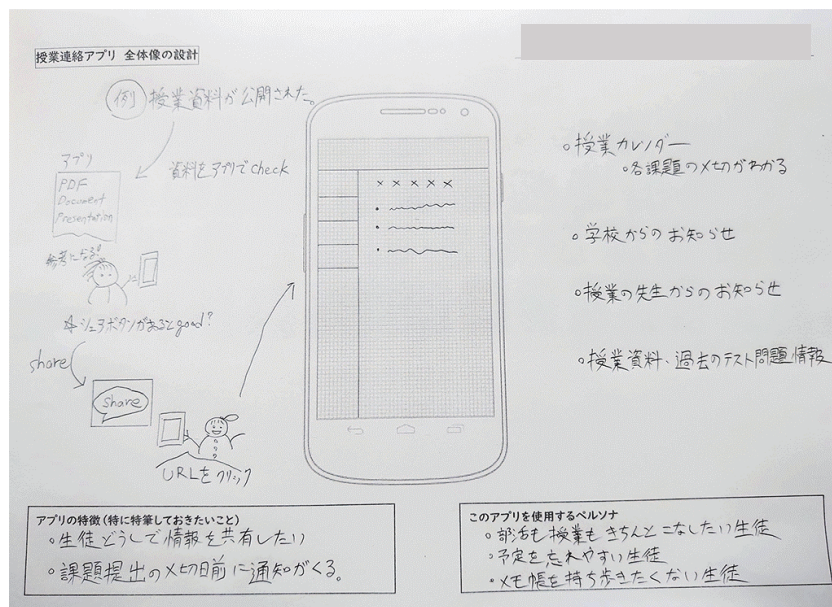 授業連絡アプリ 全体像の設計
例 授業資料が公開された。
資料をアプリでcheck
アプリ
PDF
Document
Presentation
参考になる!
☆シェアボタンがあるとgood?
share
share
URLをクリック
×××××
。授業カレンダー
・各課題の〆切がわかる
。学校からのお知らせ
。授業の先生からのお知らせ
。授業資料・過去のテスト問題情報
アプリの特徴(特に特筆しておきたいこと)
。生徒どうしで情報を共有したい
。課題提出の〆切日前に通知がくる。
このアプリを使用するペルソナ
。部活も授業もきちんとこなしたい生徒
・予定を忘れやすい生徒
・メモ帳を持ち歩きたくない生徒